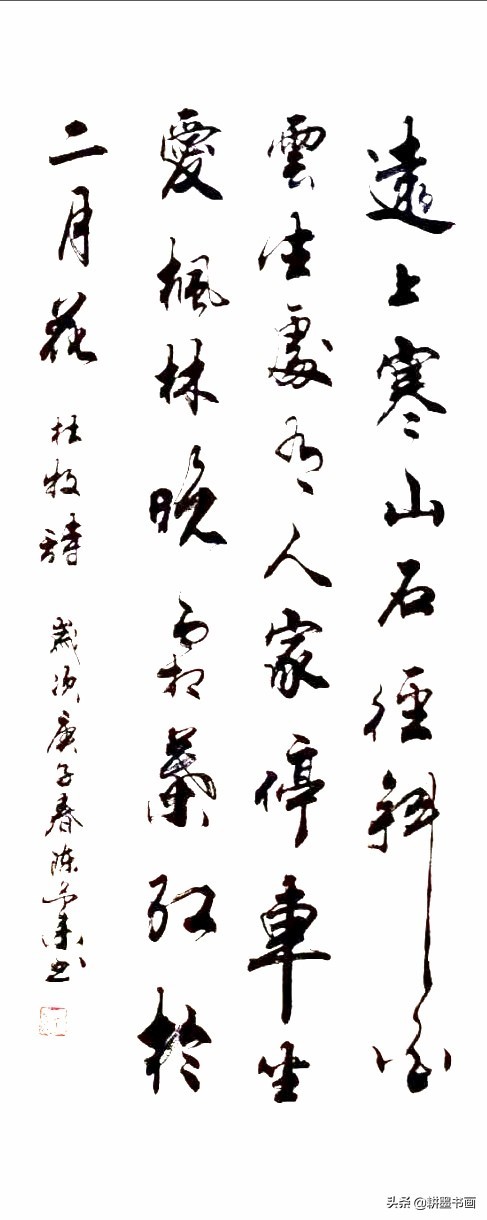 遠上寒山石徑斜白
雲生處有人家停車坐
愛楓林晚霜葉紅於
二月花 杜牧詩 歲次庚子春陈书
头条 @耕墨书画